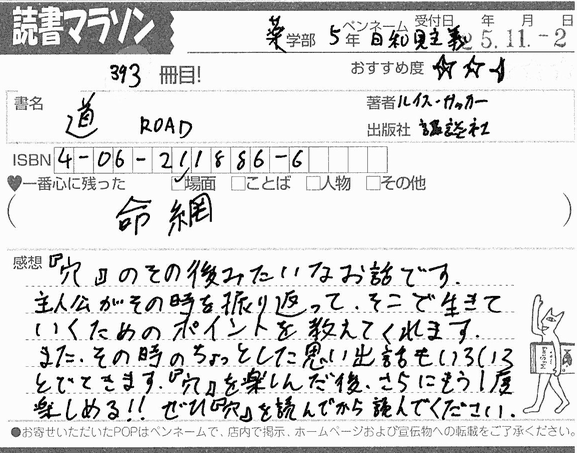 読書マラソン
薬学部 5年 ペンネーム 日和見主義 受付日 年 月 日
25.11.-2
393 冊目! おすすめ度 ☆☆
書名 道 ROAD
著者 ルイス・サッカー
出版社 講談社
ISBN 4-06-211886-6
♥一番心に残った ☑場面 □ことば □人物 □その他
(命綱)
感想 『穴』のその後みたいなお話です.
主人公がその時を振り返って、そこで生きて
いくためのポイントを教えてくれます.
また、その時のちょっとした思い出話もいろいろ
とでてきます.『穴』を楽しんだ後、さらにもう1度
楽しめる!! ぜひ『穴』を読んでから読んでください.
●お寄せいただいたPOPはペンネームで、店内で掲示、ホームページおよび宣伝物への転載をご了承ください。